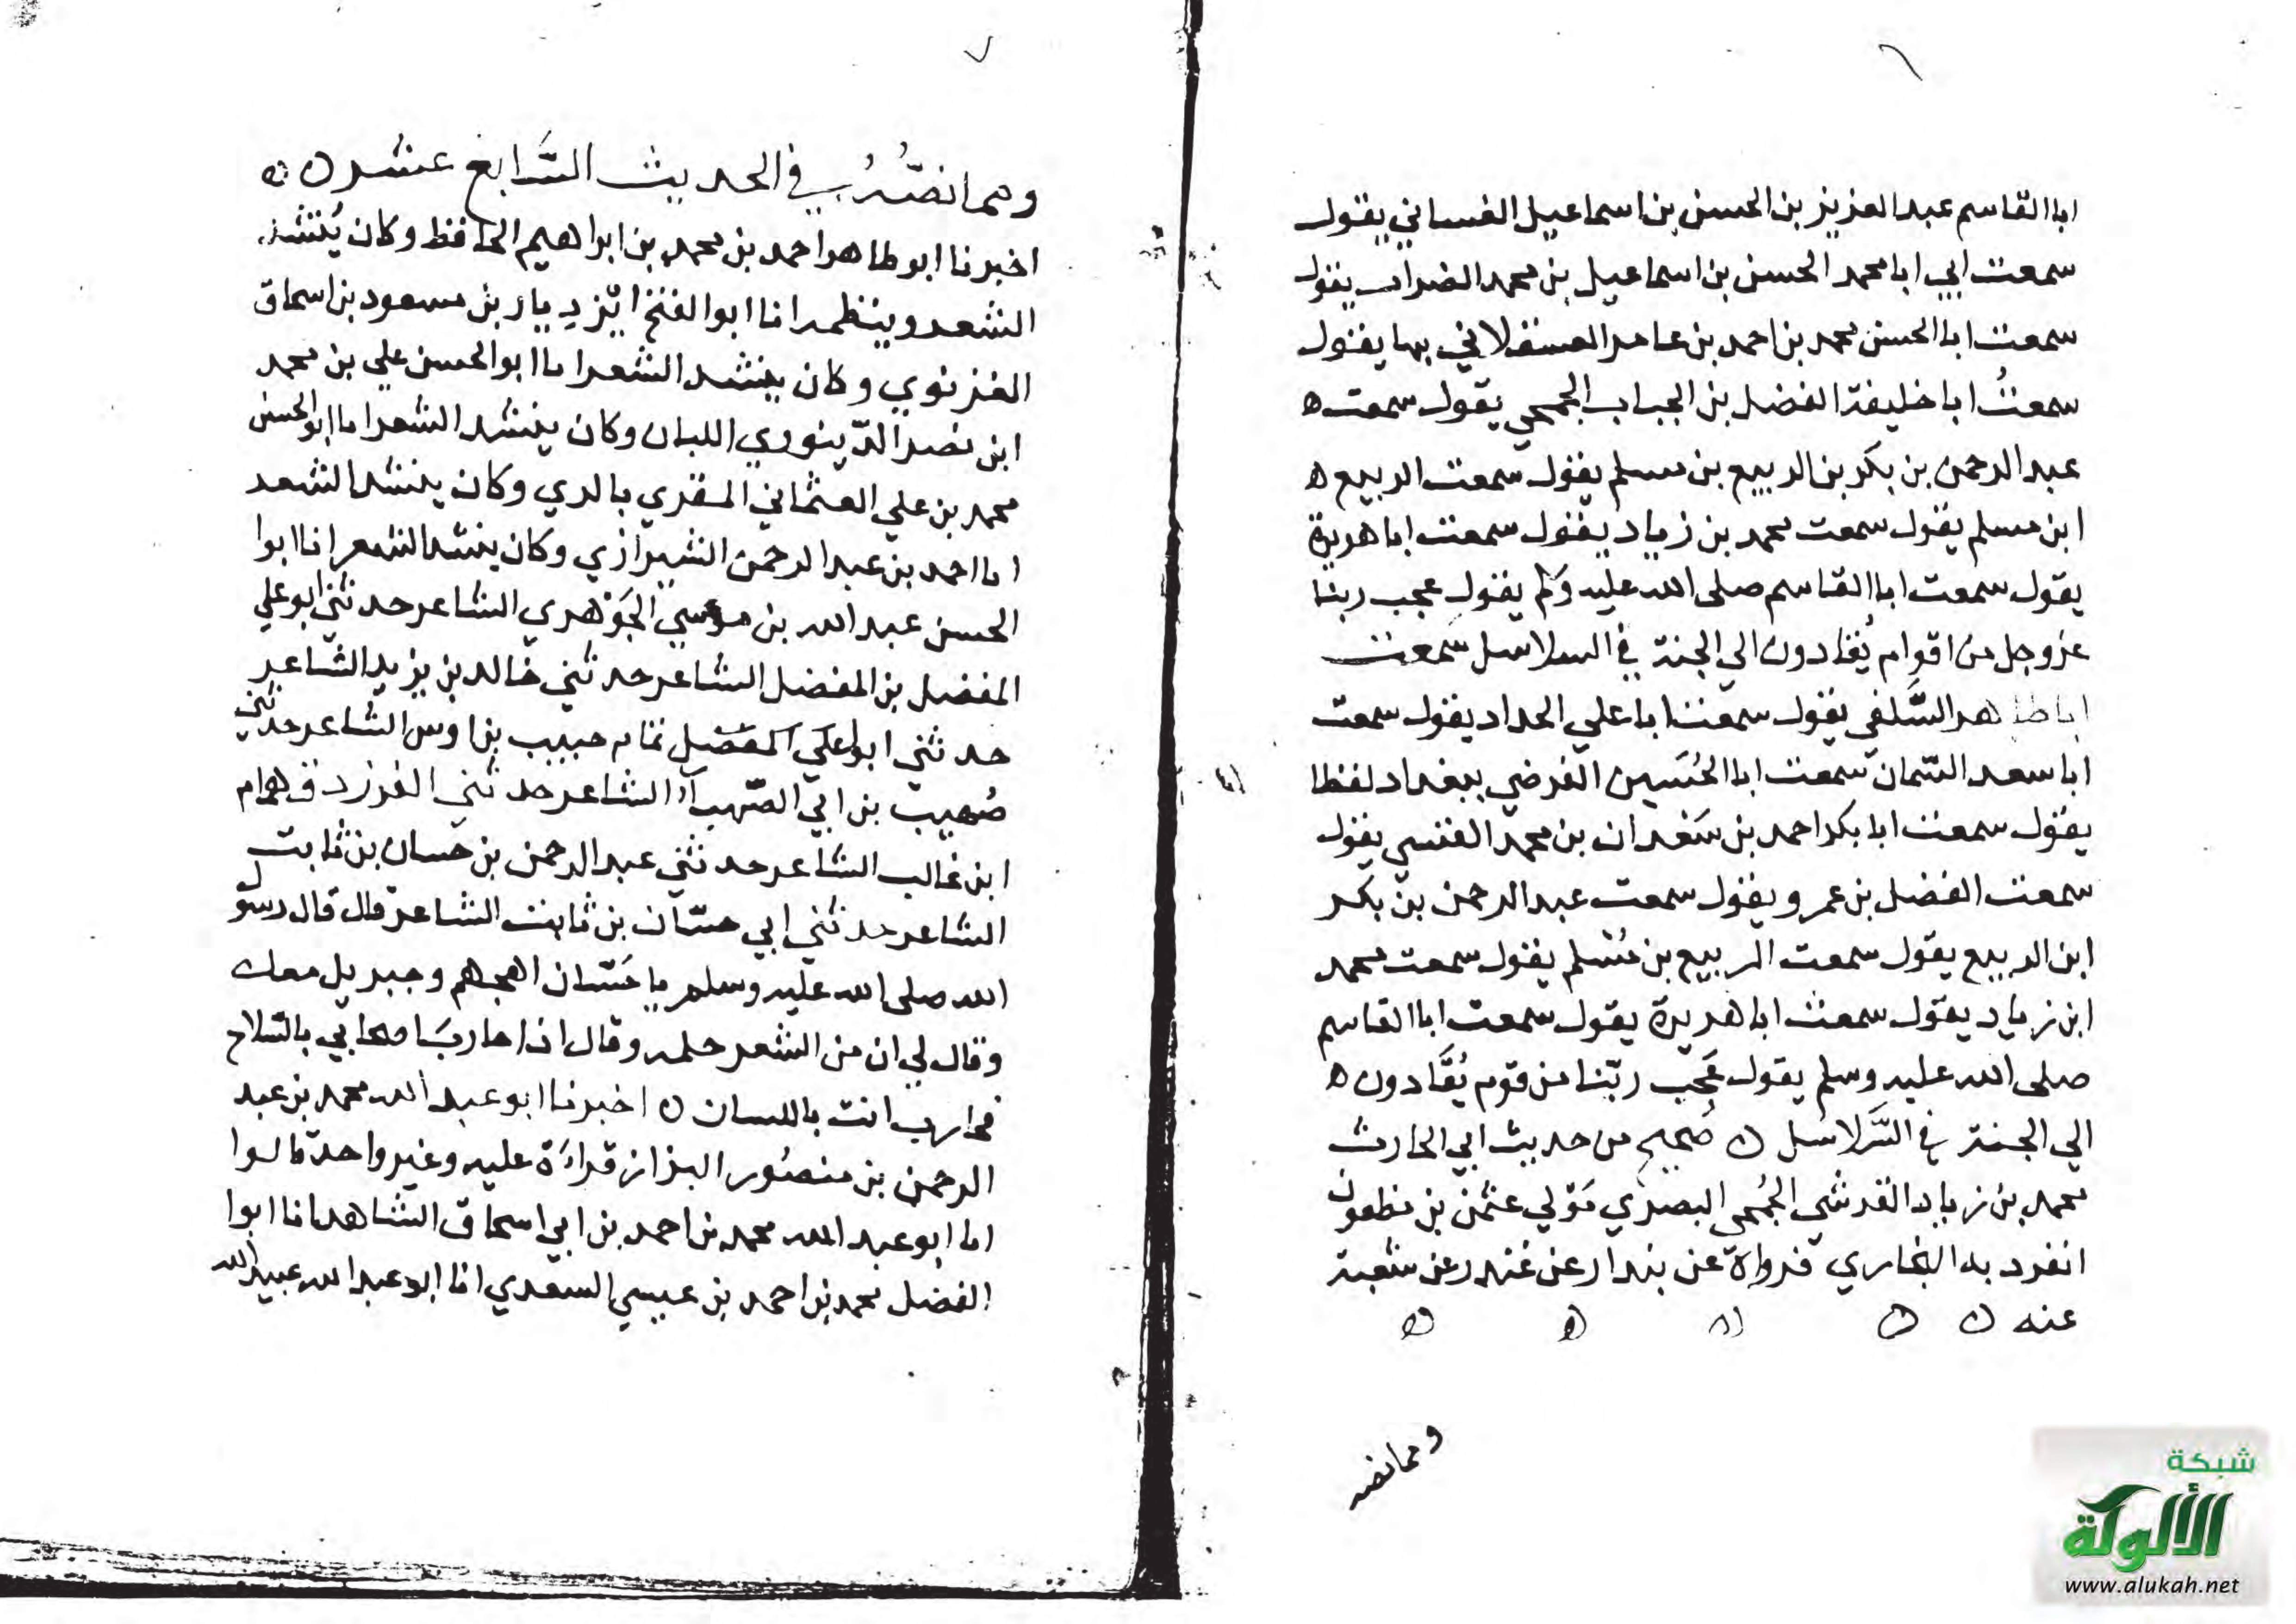 ابا القاسم عبد العزيز بن الحسن بن اسماعيل الغساني يقول
سمعت ابي ابا محمد الحسن بن اسماعيل بن محمد الضراب يقول
سمعت ابا الحسن محمد بن احمد بن عامر العسقلاني بها يقول
سمعتُ ابا خليفة الفضل بن الحباب الجمحي يقول سمعت ه
عبد الرحمن بن بكر بن الربيع بن مسلم يقول سمعت الربيع ه
ابن مسلم يقول سمعت محمد بن زياد يقول سمعت ابا هريرة
يقول سمعت ابا القاسم صلى الله عليه وسلم يقول عجب ربنا
عز وجل من اقوام يُقادون الي الجنة في السلاسل سمعت
ابا طاهر السِّلَفي يقول سمعت ابا علي الحداد يقول سمعت
ابا سعد السّمان سمعت ابا الحُسَين الفرضي ببغداد لفظا
يقول سمعت ابا بكر احمد بن سَعْدان بن محمد يقول
سمعت الفضل بن عمرو يقول سمعت عبد الرحمن بن بكر
ابن الربيع يقول سمعت الربيع بن مُسْلم يقول سمعت محمد
ابن زياد يقول سمعت ابا هريرة يقول سمعت ابا القاسم
صلى الله عليه وسلم يقول عَجِب ربّنا من قوم يُقَادون ه
الي الجنة في السَّلاسل ه صحيح من حديث ابي الحارث
محمد بن زياد القرشي الجُمحي البصري مَوْلي عثمن بن مظعون
انفرد به البخاري فرواه عن بندار عن غندر عن شعبة
عنه ه ه ه ه ه
ومما نصه
وهما نصّه في الحديث السَّابع عشر ه ه
اخبرنا ابو طاهر احمد بن محمد بن ابراهيم الحافظ وكان يُنشد
الشعر وينظمه انا ابو الفتح ايزديار بن مسعود بن اسحاق
الغزنوي وكان ينشد الشعر انا ابو الحسن علي بن محمد
ابن نصر الدّينوري اللبان وكان ينشد الشعر انا ابو الحسن
محمد بن علي العثماني المقري بالري وكان ينشد الشعر
انا احمد بن عبد الرحمن الشيرازي وكان ينشد الشعر انا ابوا
الحسن عبد الله بن موسي الجَوْهري الشاعر حدثني ابو علي
المفضل بن المفضل الشاعر حدثني خالد بن يزيد الشاعر
حدثني ابو علي المفضل تمام حبيب بن اوس الشاعر حدثني
صُهيب بن ابي الصّهبآء الشاعر حدثني الفرزدق همام
ابن غالب الشاعر حدثني عبد الرحمن بن حسان بن ثابت
الشاعر حدثني ابي حسّان بن ثابت الشاعر قال قال رسول
الله صلى الله عليه وسلم يا حَسّان اهجهم وجبريل معك
وقال لي ان من الشعر حكمه وقال اذا حارب اصحابي بالسّلاح
فحارب انت باللسان ه اخبرنا ابو عبد الله محمد بن عبد
الرحمن بن منصُور البزاز قراءَة عليه وغير واحد قالوا
انا ابو عبد الله محمد بن احمد بن ابي اسحاق الشاهد انا ابوا
الفضل محمد بن احمد بن عيسي السعدي انا ابو عبد الله عبيد الله
شبكة
الألوكة
www.alukah.net